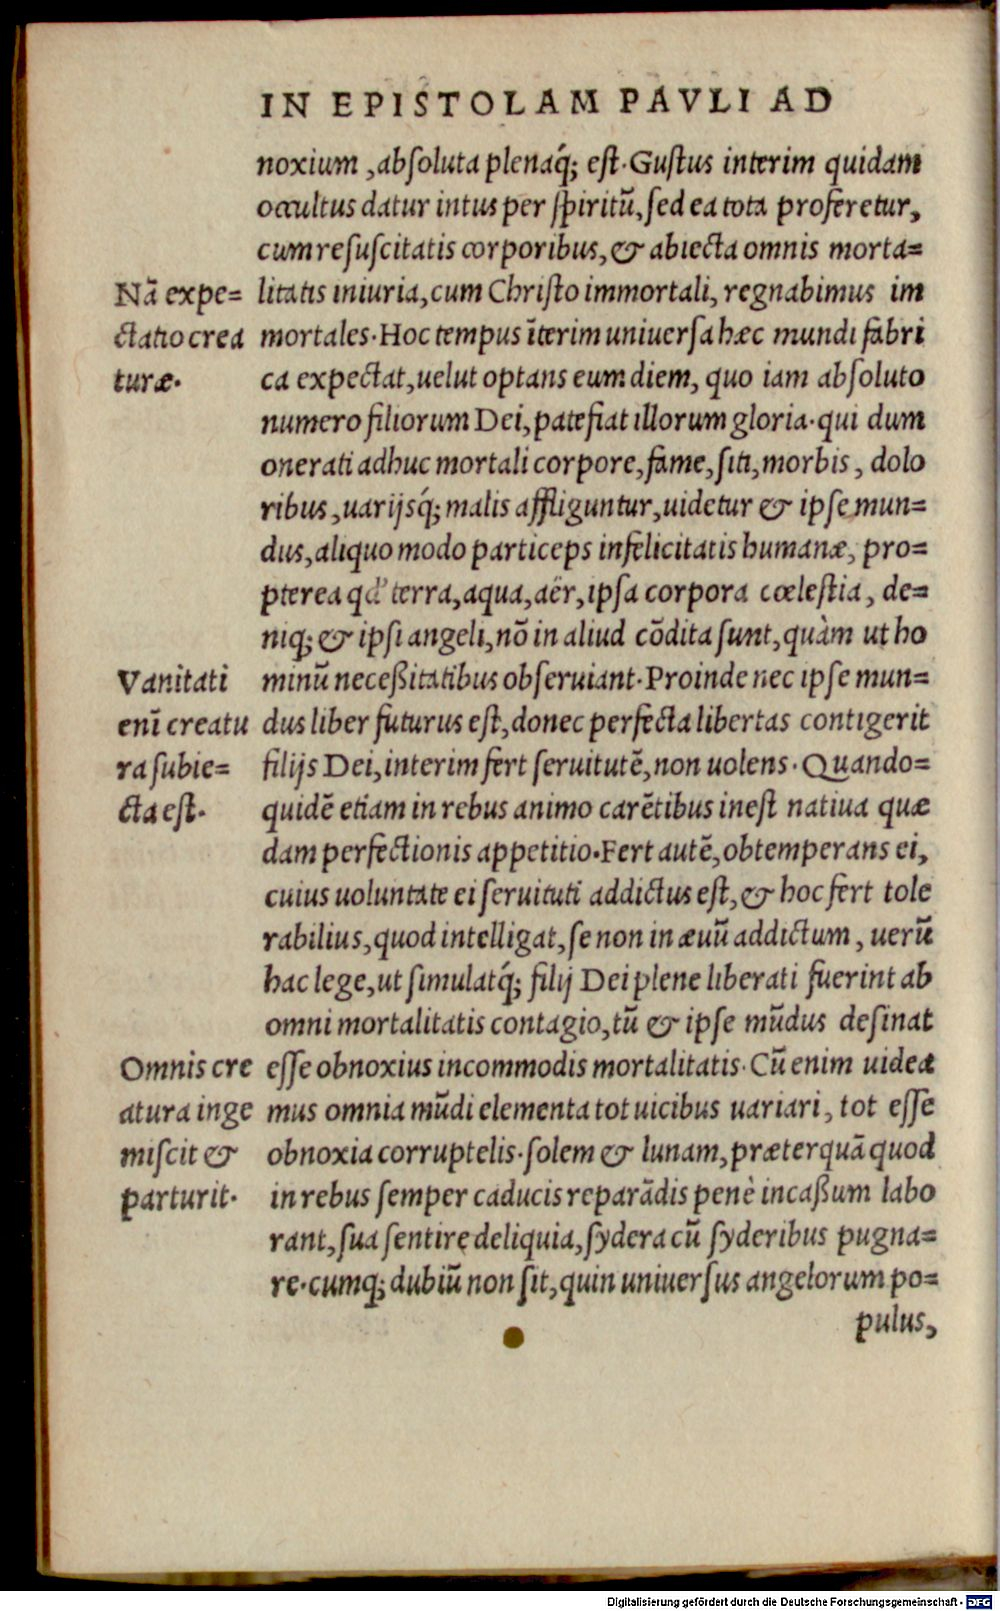 IN EPISTOLAM PAVLI AD
noxium, absoluta plenaq́; est. Gustus interim quidam
occultus datur intus per spiritũ, sed ea tota proferetur,
cum resuscitatis corporibus, & abiecta omnis morta=
litatis iniuria, cum Christo immortali, regnabimus im
mortales. Hoc tempus ĩterim uniuersa hæc mundi fabri
ca expectat, uelut optans eum diem, quo iam absoluto
numero filiorum Dei, patefiat illorum gloria. qui dum
onerati adhuc mortali corpore, fame, siti, morbis, dolo
ribus, uarijsq́; malis affliguntur, uidetur & ipse mun=
dus, aliquo modo particeps infelicitatis humanæ, pro=
pterea qđ terra, aqua, aër, ipsa corpora cœlestia, de=
niq; & ipsi angeli, nõ in aliud cõdita sunt, quàm ut ho
minũ neceßitatibus obseruiant. Proinde nec ipse mun=
dus liber futurus est, donec perfecta libertas contigerit
filijs Dei, interim fert seruitutẽ, non uolens. Quando=
quidẽ etiam in rebus animo carẽtibus inest natiua quæ
dam perfectionis appetitio. Fert autẽ, obtemperans ei,
cuius uoluntate ei seruituti addictus est, & hoc fert tole
rabilius, quod intelligat, se non in æuũ addictum, uerũ
hac lege, ut simulatq́; filij Dei plene liberati fuerint ab
omni mortalitatis contagio, tũ & ipse mũdus desinat
esse obnoxius incommodis mortalitatis. Cũ enim uidea
mus omnia mũdi elementa tot uicibus uariari, tot esse
obnoxia corruptelis. solem & lunam, præterquã quod
in rebus semper caducis reparãdis penè incaßum labo
rant, sua sentire deliquia, sydera cũ syderibus pugna=
re. cumq; dubiũ non sit, quin uniuersus angelorum po=
pulus,
Nã expe=
ctatio crea
turæ.
Vanitati
enĩ creatu
ra subie=
cta est.
Omnis cre
atura inge
miscit &
parturit.
Digitalisierung gefördert durch die Deutsche Forschungsgemeinschaft - DFG